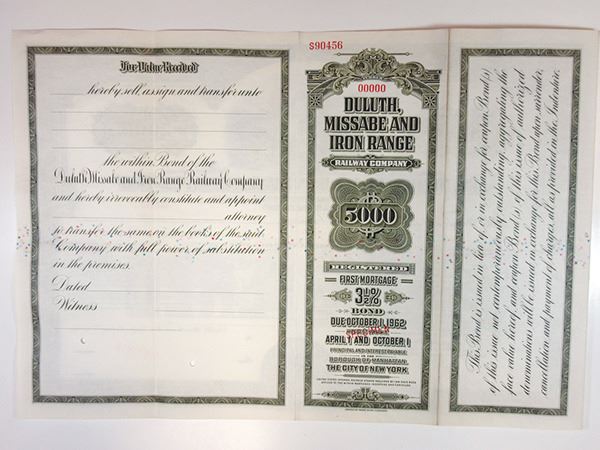 For Value Received
hereby sell, assign and transfer unto
the within Bond of the
Duluth, Missabe and Iron Range Railway Company
and hereby irrevocably constitute and appoint
attorney
to transfer the same on the books of the said
Company with full power of substitution
in the premises.
Dated
Witness
S90456
00000
DULUTH,
MISSABE AND
IRON RANGE
RAILWAY COMPANY
5000
REGISTERED
FIRST MORTGAGE
3½%
BOND
DUE OCTOBER 1, 1962
SPECIMEN
APRIL 1 AND OCTOBER 1
PRINCIPAL AND INTEREST PAYABLE
IN THE
BOROUGH OF MANHATTAN
THE CITY OF NEW YORK
This Bond is issued in lieu of or in exchange for coupon Bond(s)
of this issue not contemporaneously outstanding aggregating the
face value hereof and coupon Bond(s) of this issue of authorized
denominations will be issued in exchange for this Bond upon surrender,
cancellation and payment of charges, all as provided in the Indenture.